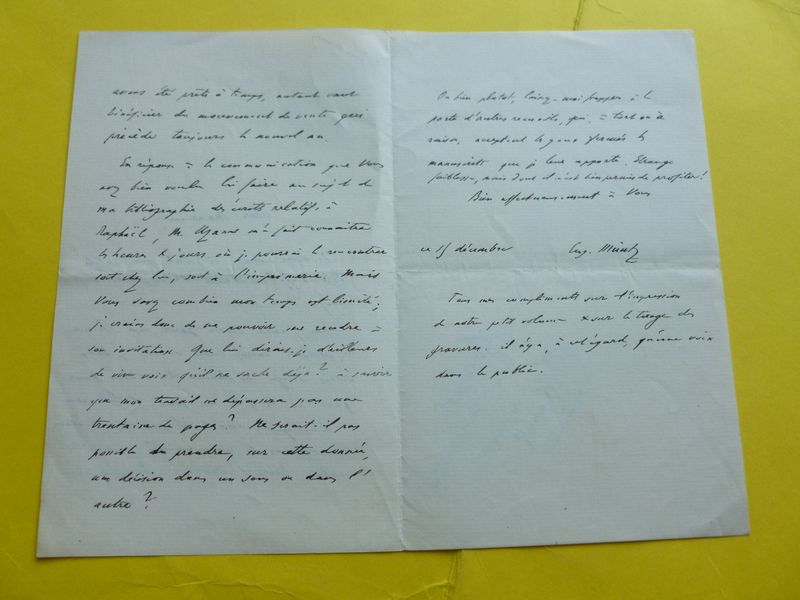 avons été prêts à temps, autant vaut
bénéficier du mouvement de vente qui
précède toujours le nouvel an.
En réponse à la communication que Vous
avez bien voulu lui faire au sujet de
ma bibliographie des écrits relatifs à
Raphaël, M. Uzanne m'a fait connaître
les heures & jours où je pourrai le rencontrer
soit chez lui, soit à l'imprimerie. Mais
Vous savez combien mon temps est limité;
je crains donc de ne pouvoir me rendre à
son invitation. Que lui dirais-je d'ailleurs
de vive voix qu'il ne sache déjà? à savoir
que mon travail ne dépassera pas une
trentaine de pages? Ne serait-il pas
possible de prendre, sur cette donnée,
une décision dans un sens ou dans l'
autre?
Ou bien plutôt, laissez-moi frapper à la
porte d'autres recueils, qui, à tort ou à
raison, acceptent les yeux fermés les
manuscrits que je leur apporte. Etrange
faiblesse, mais dont il m'est bien permis de profiter!
Bien affectueusement à Vous
ce 15 décembre Eug. Müntz
Tous mes compliments sur l'impression
de notre petit volume & sur le tirage des
gravures. il n'y a, à cet égard, qu'une voix
dans le public.